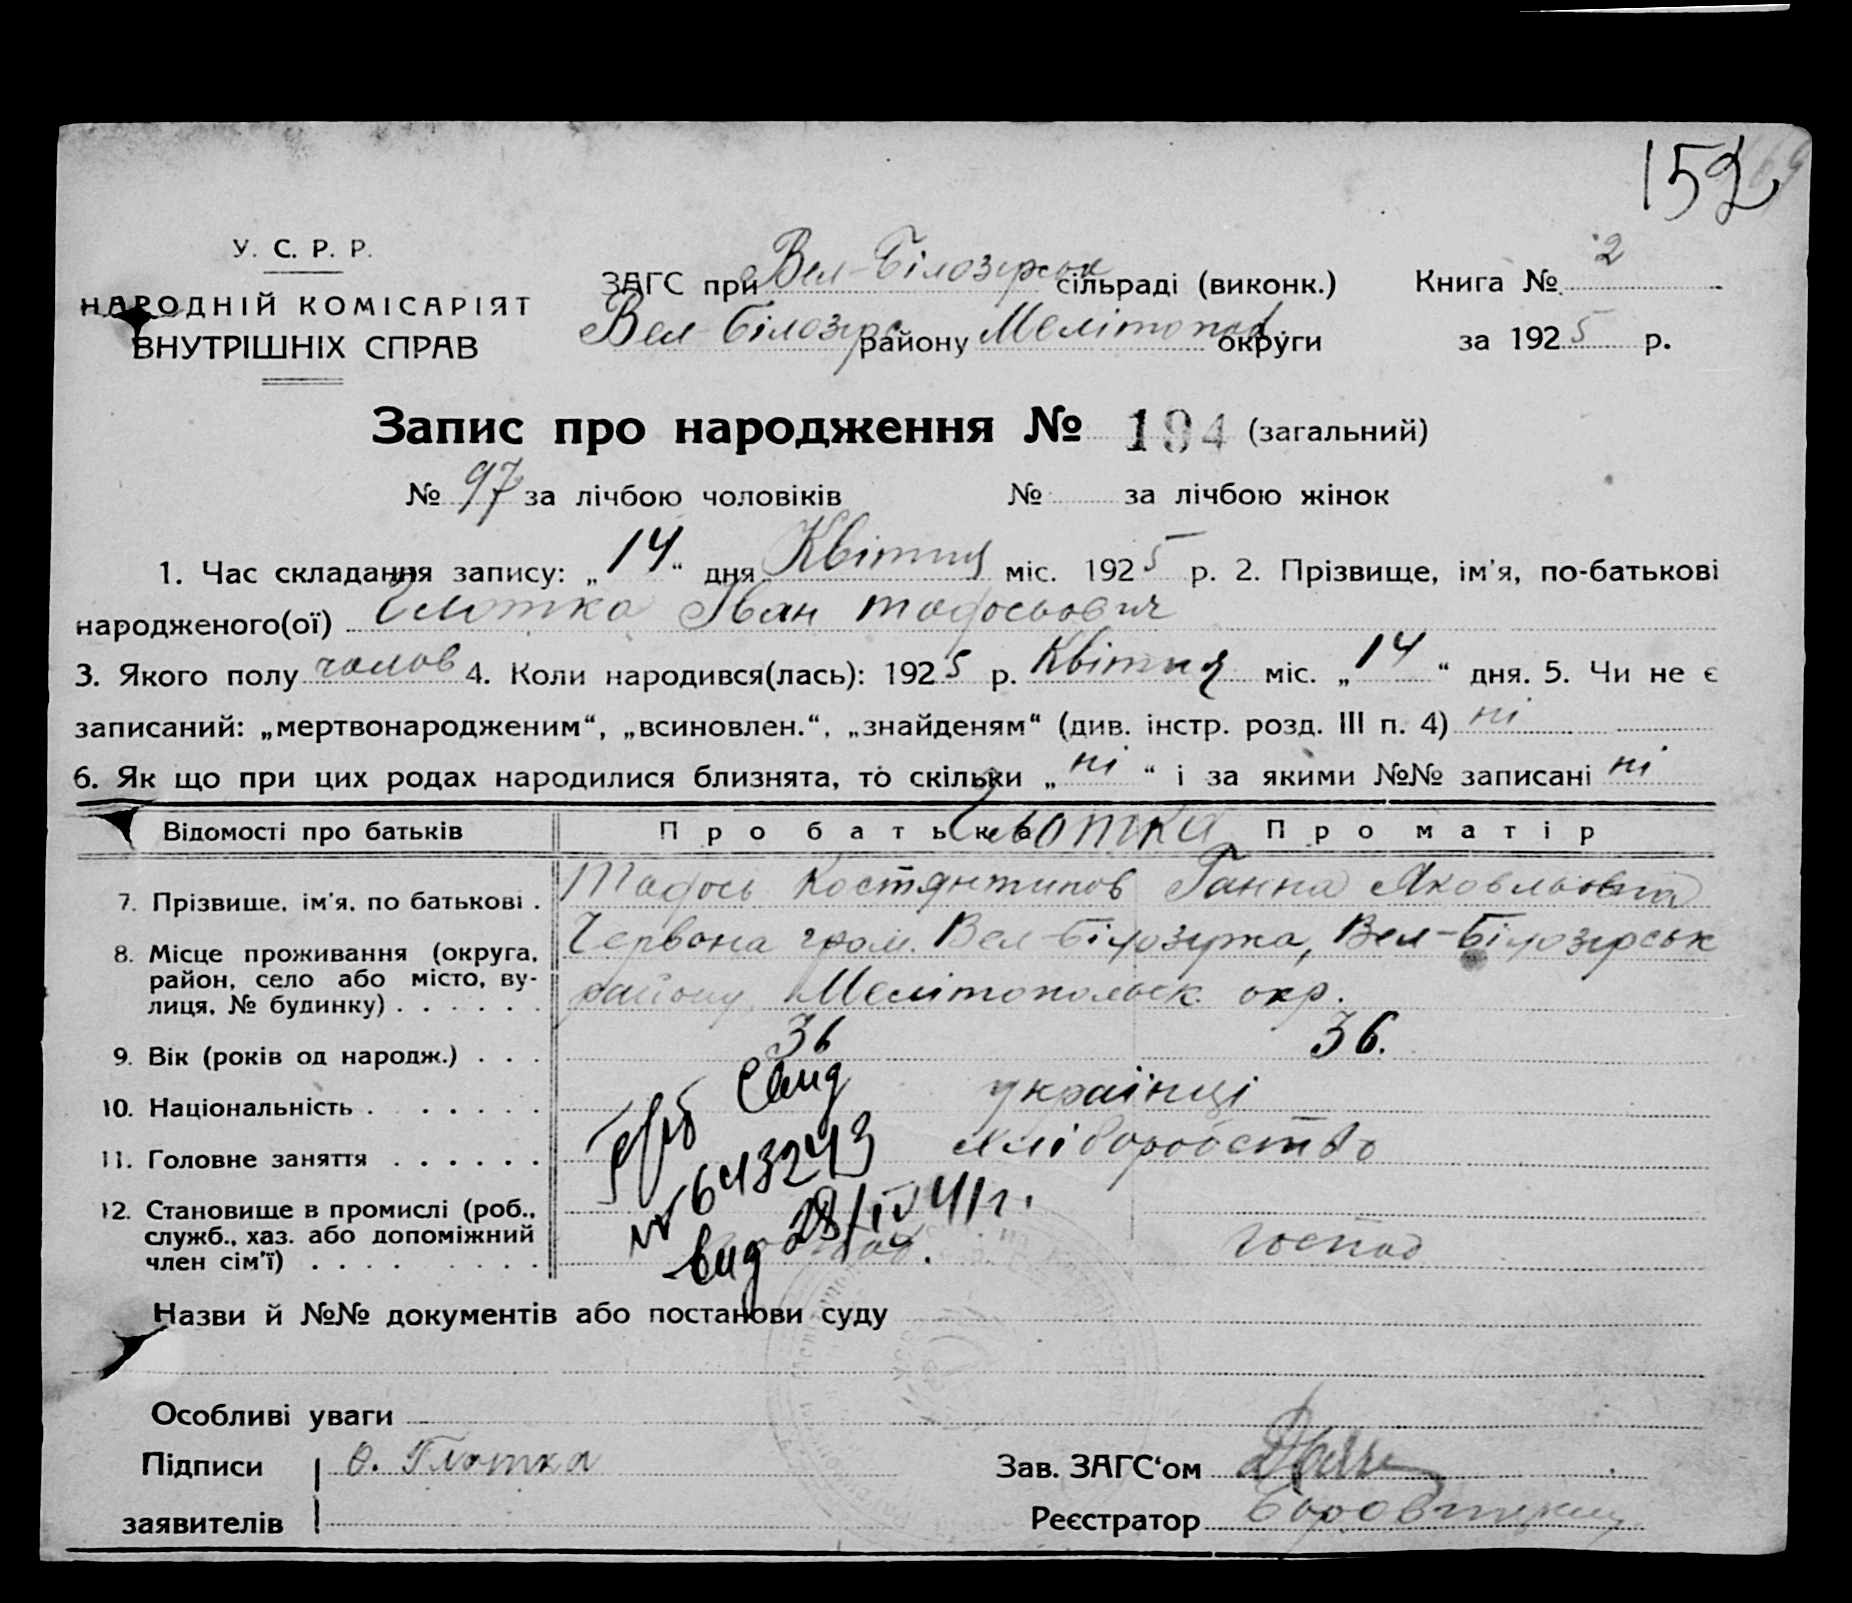 152
У. С. Р. Р.
НАРОДНІЙ КОМІСАРІЯТ
ВНУТРІШНІХ СПРАВ
ЗАГС при Вел-Білозерськ сільраді (виконк.)
Вел-Білозерс району Мелітопол округи
Книга № 2
за 1925 р.
Запис про народження № 194 (загальний)
№ 97 за лічбою чоловіків № за лічбою жінок
1. Час складання запису: „14“ дня Квітня міс. 1925 р. 2. Прізвище, ім'я, по-батькові
народженого(ої) Глотка Іван Тадосьович
3. Якого полу чолов 4. Коли народився(лась): 1925 р. Квітня міс. „14“ дня. 5. Чи не є
записаний: „мертвонародженим“, „всиновлен.“, „знайденям“ (див. інстр. розд. III п. 4) ні
6. Як що при цих родах народилися близнята, то скільки „ні“ і за якими №№ записані ні
Відомості про батьків Про батька Глотка Про матір
7. Прізвище, ім'я, по батькові . Тадось Костянтинов Ганна Яковльовна
8. Місце проживання (округа, Червона гром. Вел-Білозерка, Вел-Білозерськ
район, село або місто, ву-
лиця, № будинку) . . . . . . району Мелітопольськ. окр.
9. Вік (років од народж.) . . . 36 36.
10. Національність . . . . . . . українці
11. Головне заняття . . . . . . хліборобство
12. Становище в промислі (роб.,
служб., хаз. або допоміжний
член сім'ї) . . . . . . . . . господ
№ 643243
вид 28/IV 41 г.
Назви й №№ документів або постанови суду
Особливі уваги
Підписи О. Глотка Зав. ЗАГС‘ом
заявителів Реєстратор